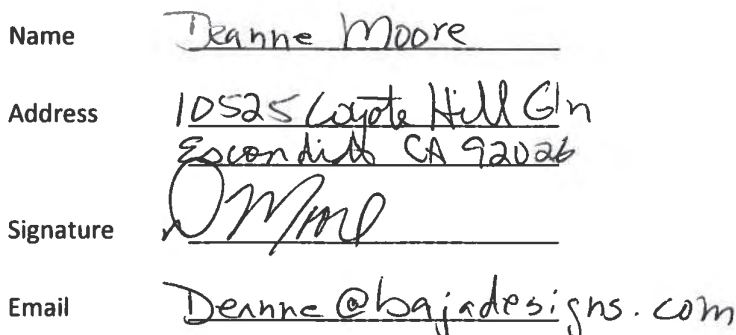 Name Deanne Moore
Address 10525 Coyote Hill Gln
Escondido CA 92026
Signature D Moore
Email Deanne@bajadesigns.com